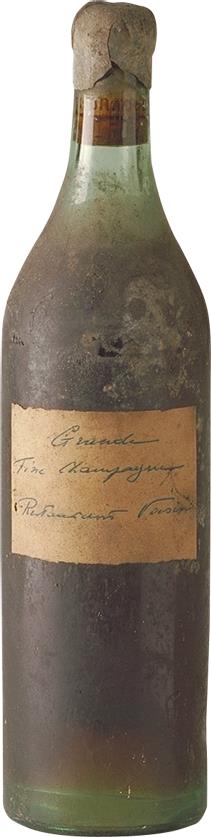 Grande
Fine Champagne
Restaurant Voisin